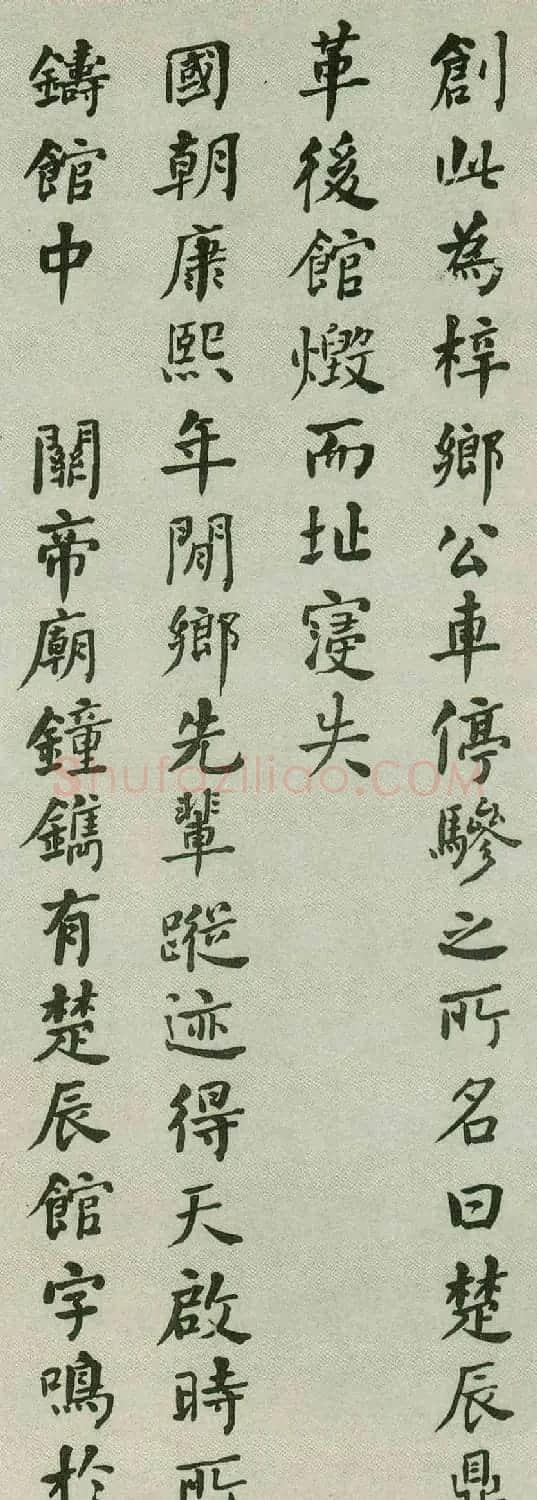 創此為梓鄉公車停驂之所名曰楚辰鼎
革後館燬而址寖失
國朝康熙年間鄉先輩蹤迹得天啟時所
鑄館中 關帝廟鐘鐫有楚辰館字鳴於
Shufaziliao.COM